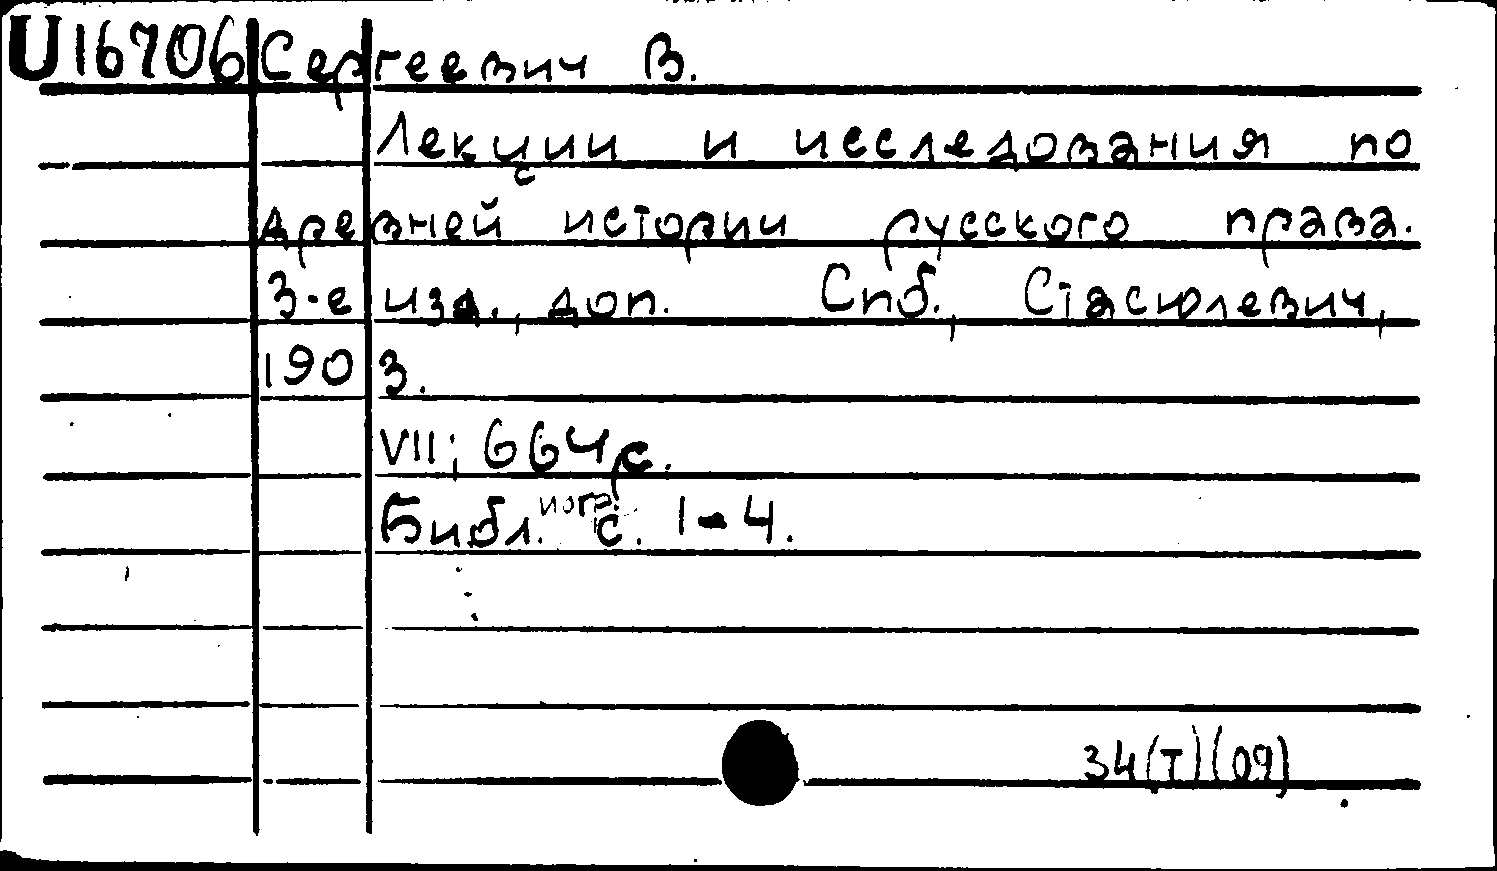 U16706 Сергеевич В.
Лекции и исследования по
древней истории русского права.
3-е изд., доп. Спб., Стасюлевич,
1903.
VII; 664 с.
Библиогр. с. 1-4.
34(Т)(09)